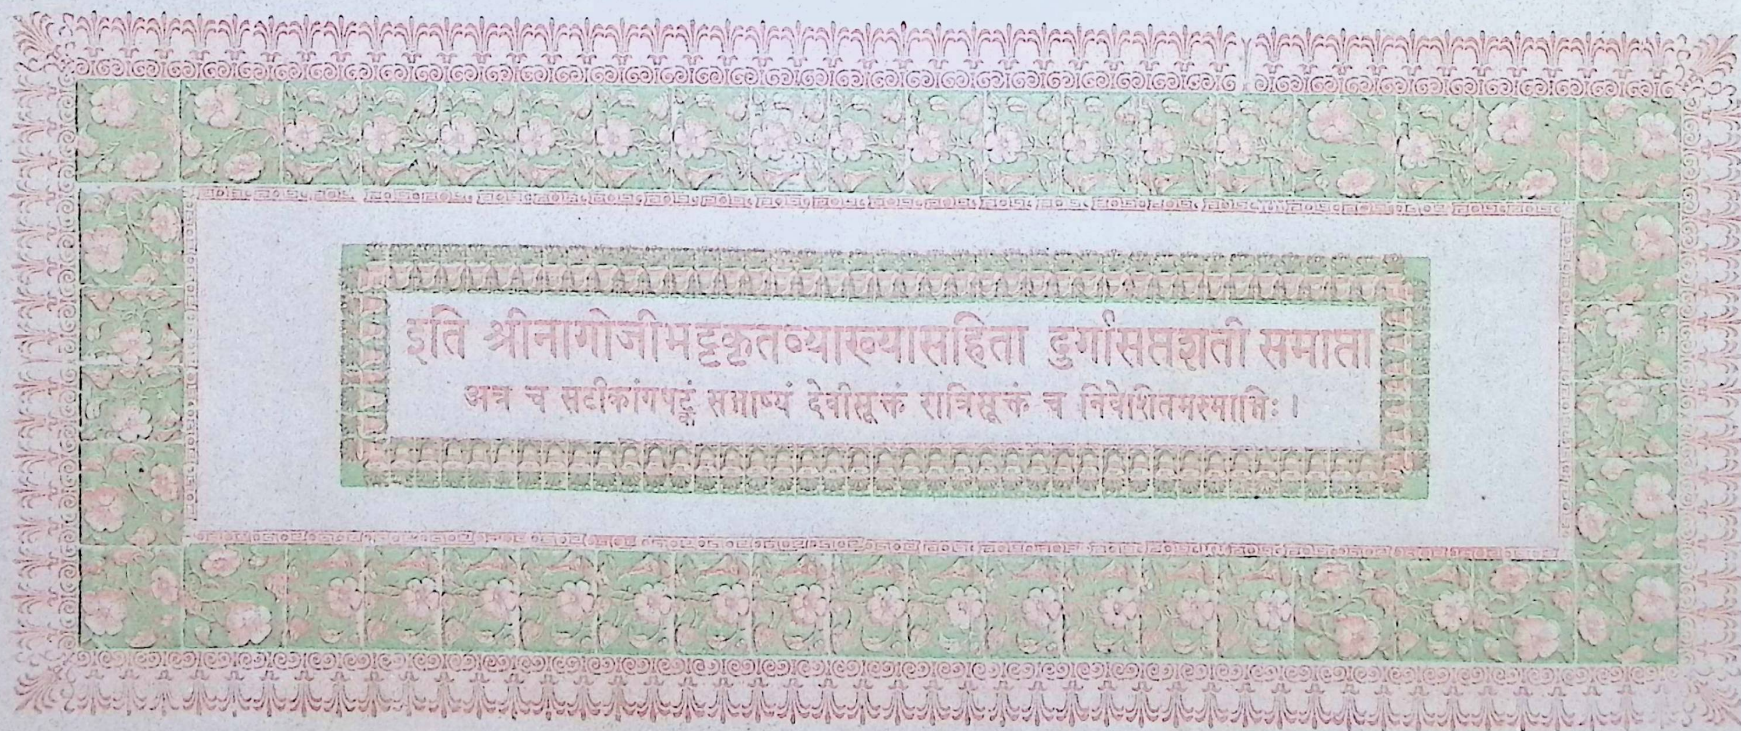 इति श्रीनागोजीभट्टकृतव्याख्यासहिता दुर्गासप्तशती समाप्ता
अत्र च सटीकांगषट्कं सभाष्यं देवीसूक्तं रात्रिसूक्तं च निवेशितमस्माभिः ।